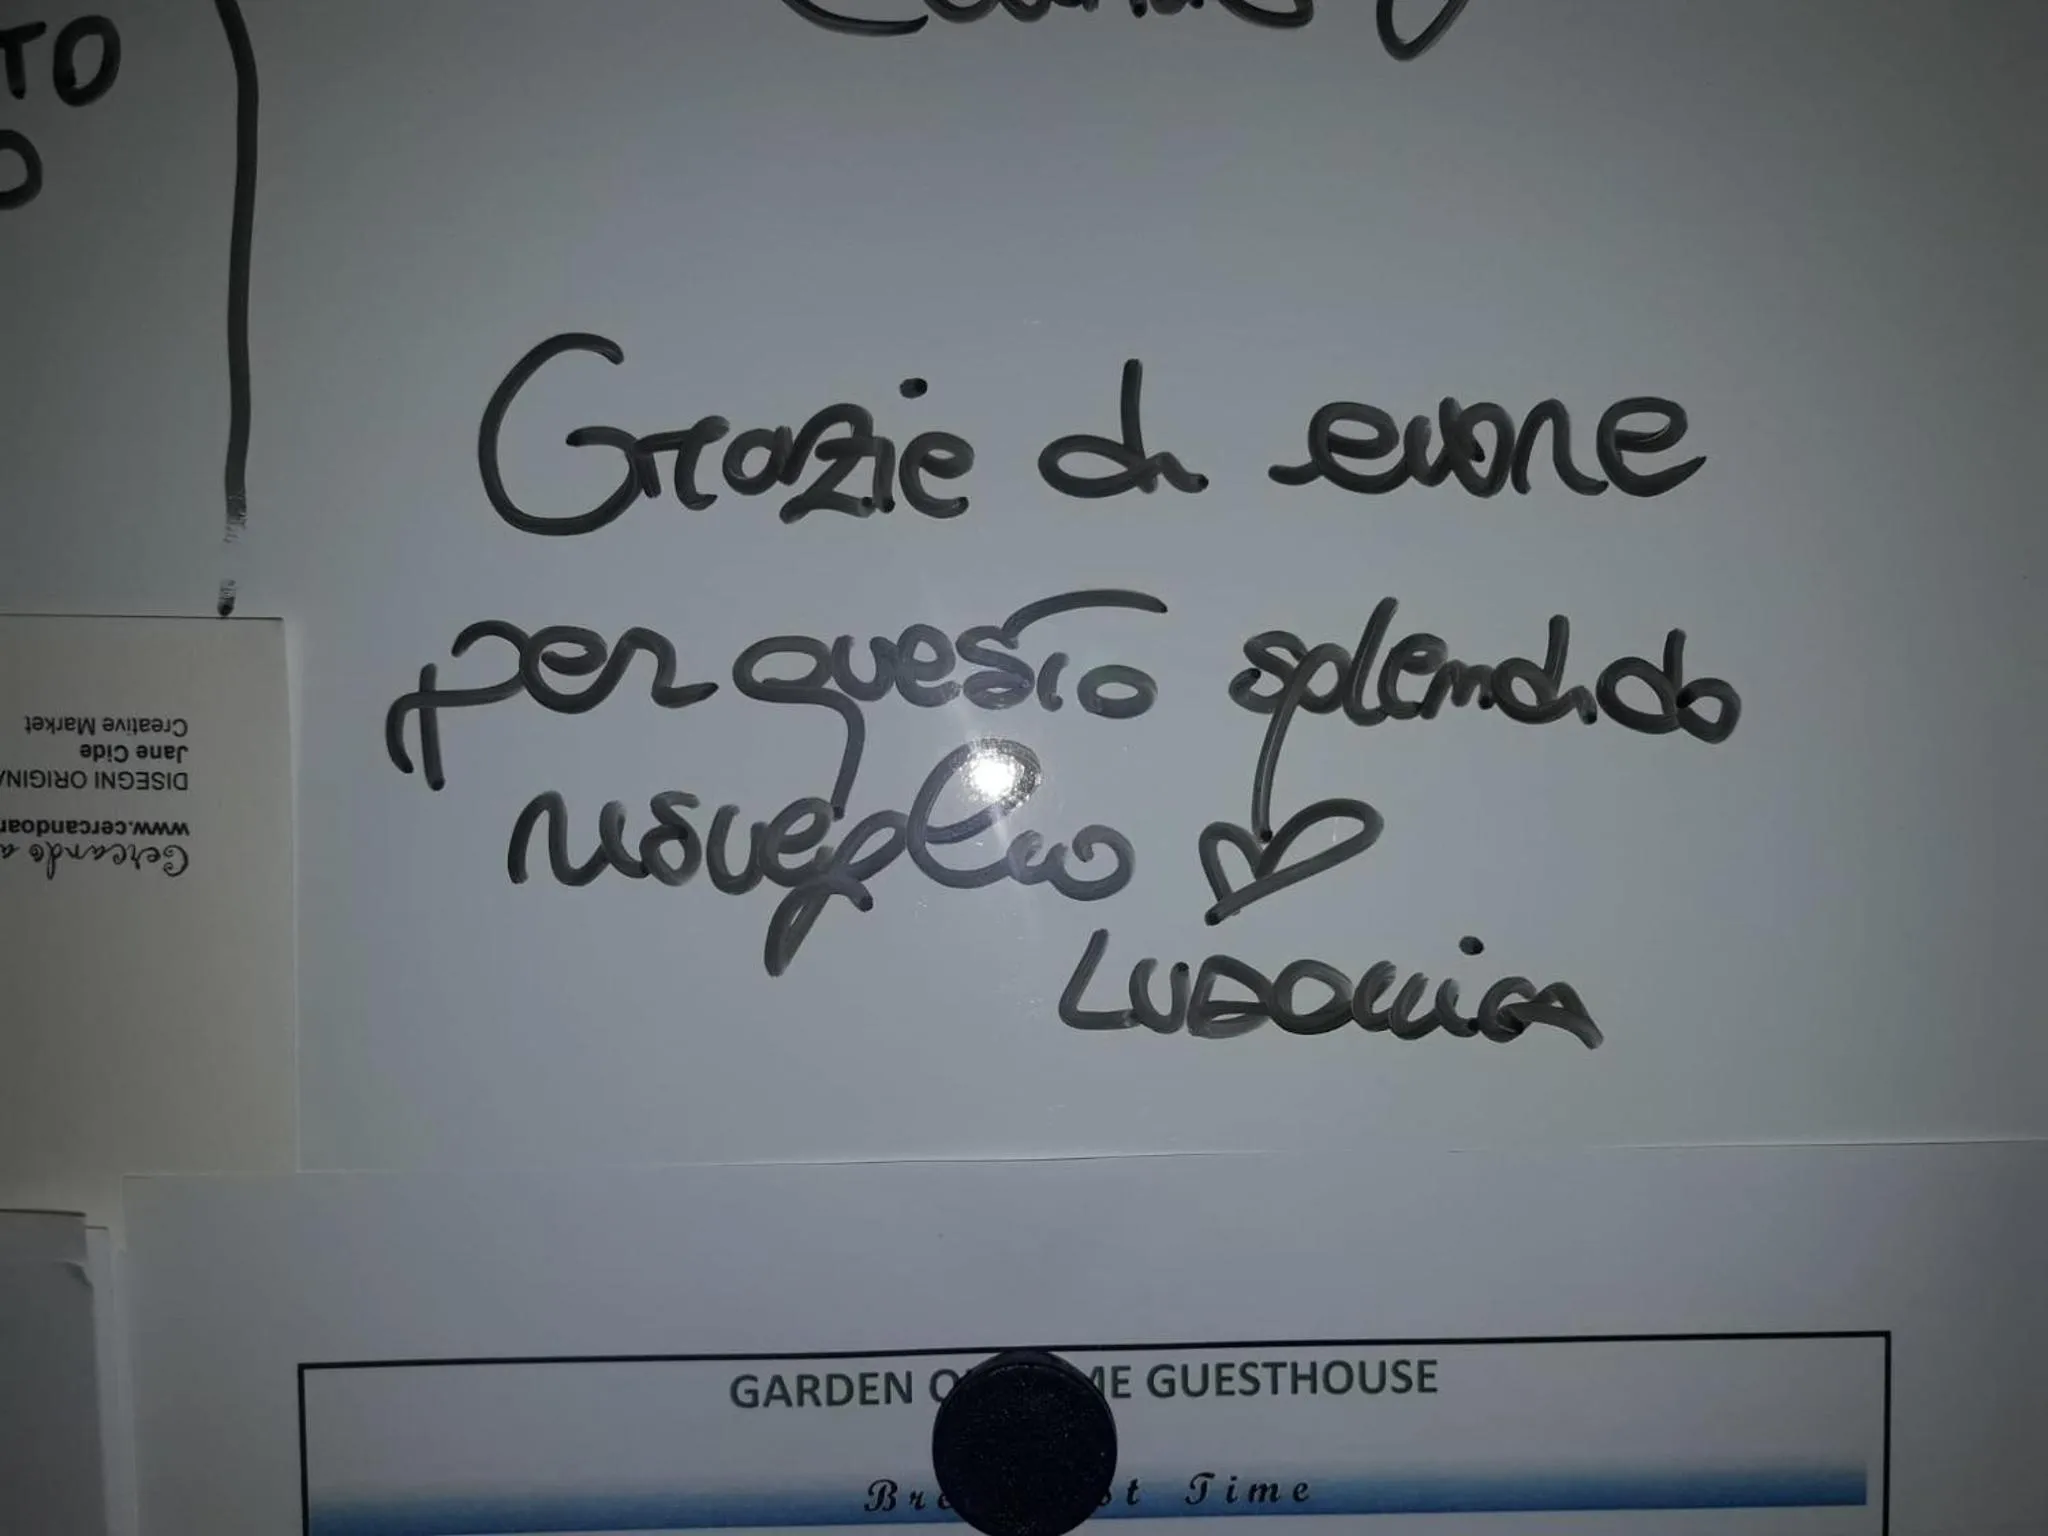 TO
O
Grazie di cuore
per questo splendido
risveglio ♡
LUDOVICA
Creative Market
Jane Cide
DISEGNI ORIGINA
www.cercandoar
Cercando a
GARDEN O ME GUESTHOUSE
Bre st Time